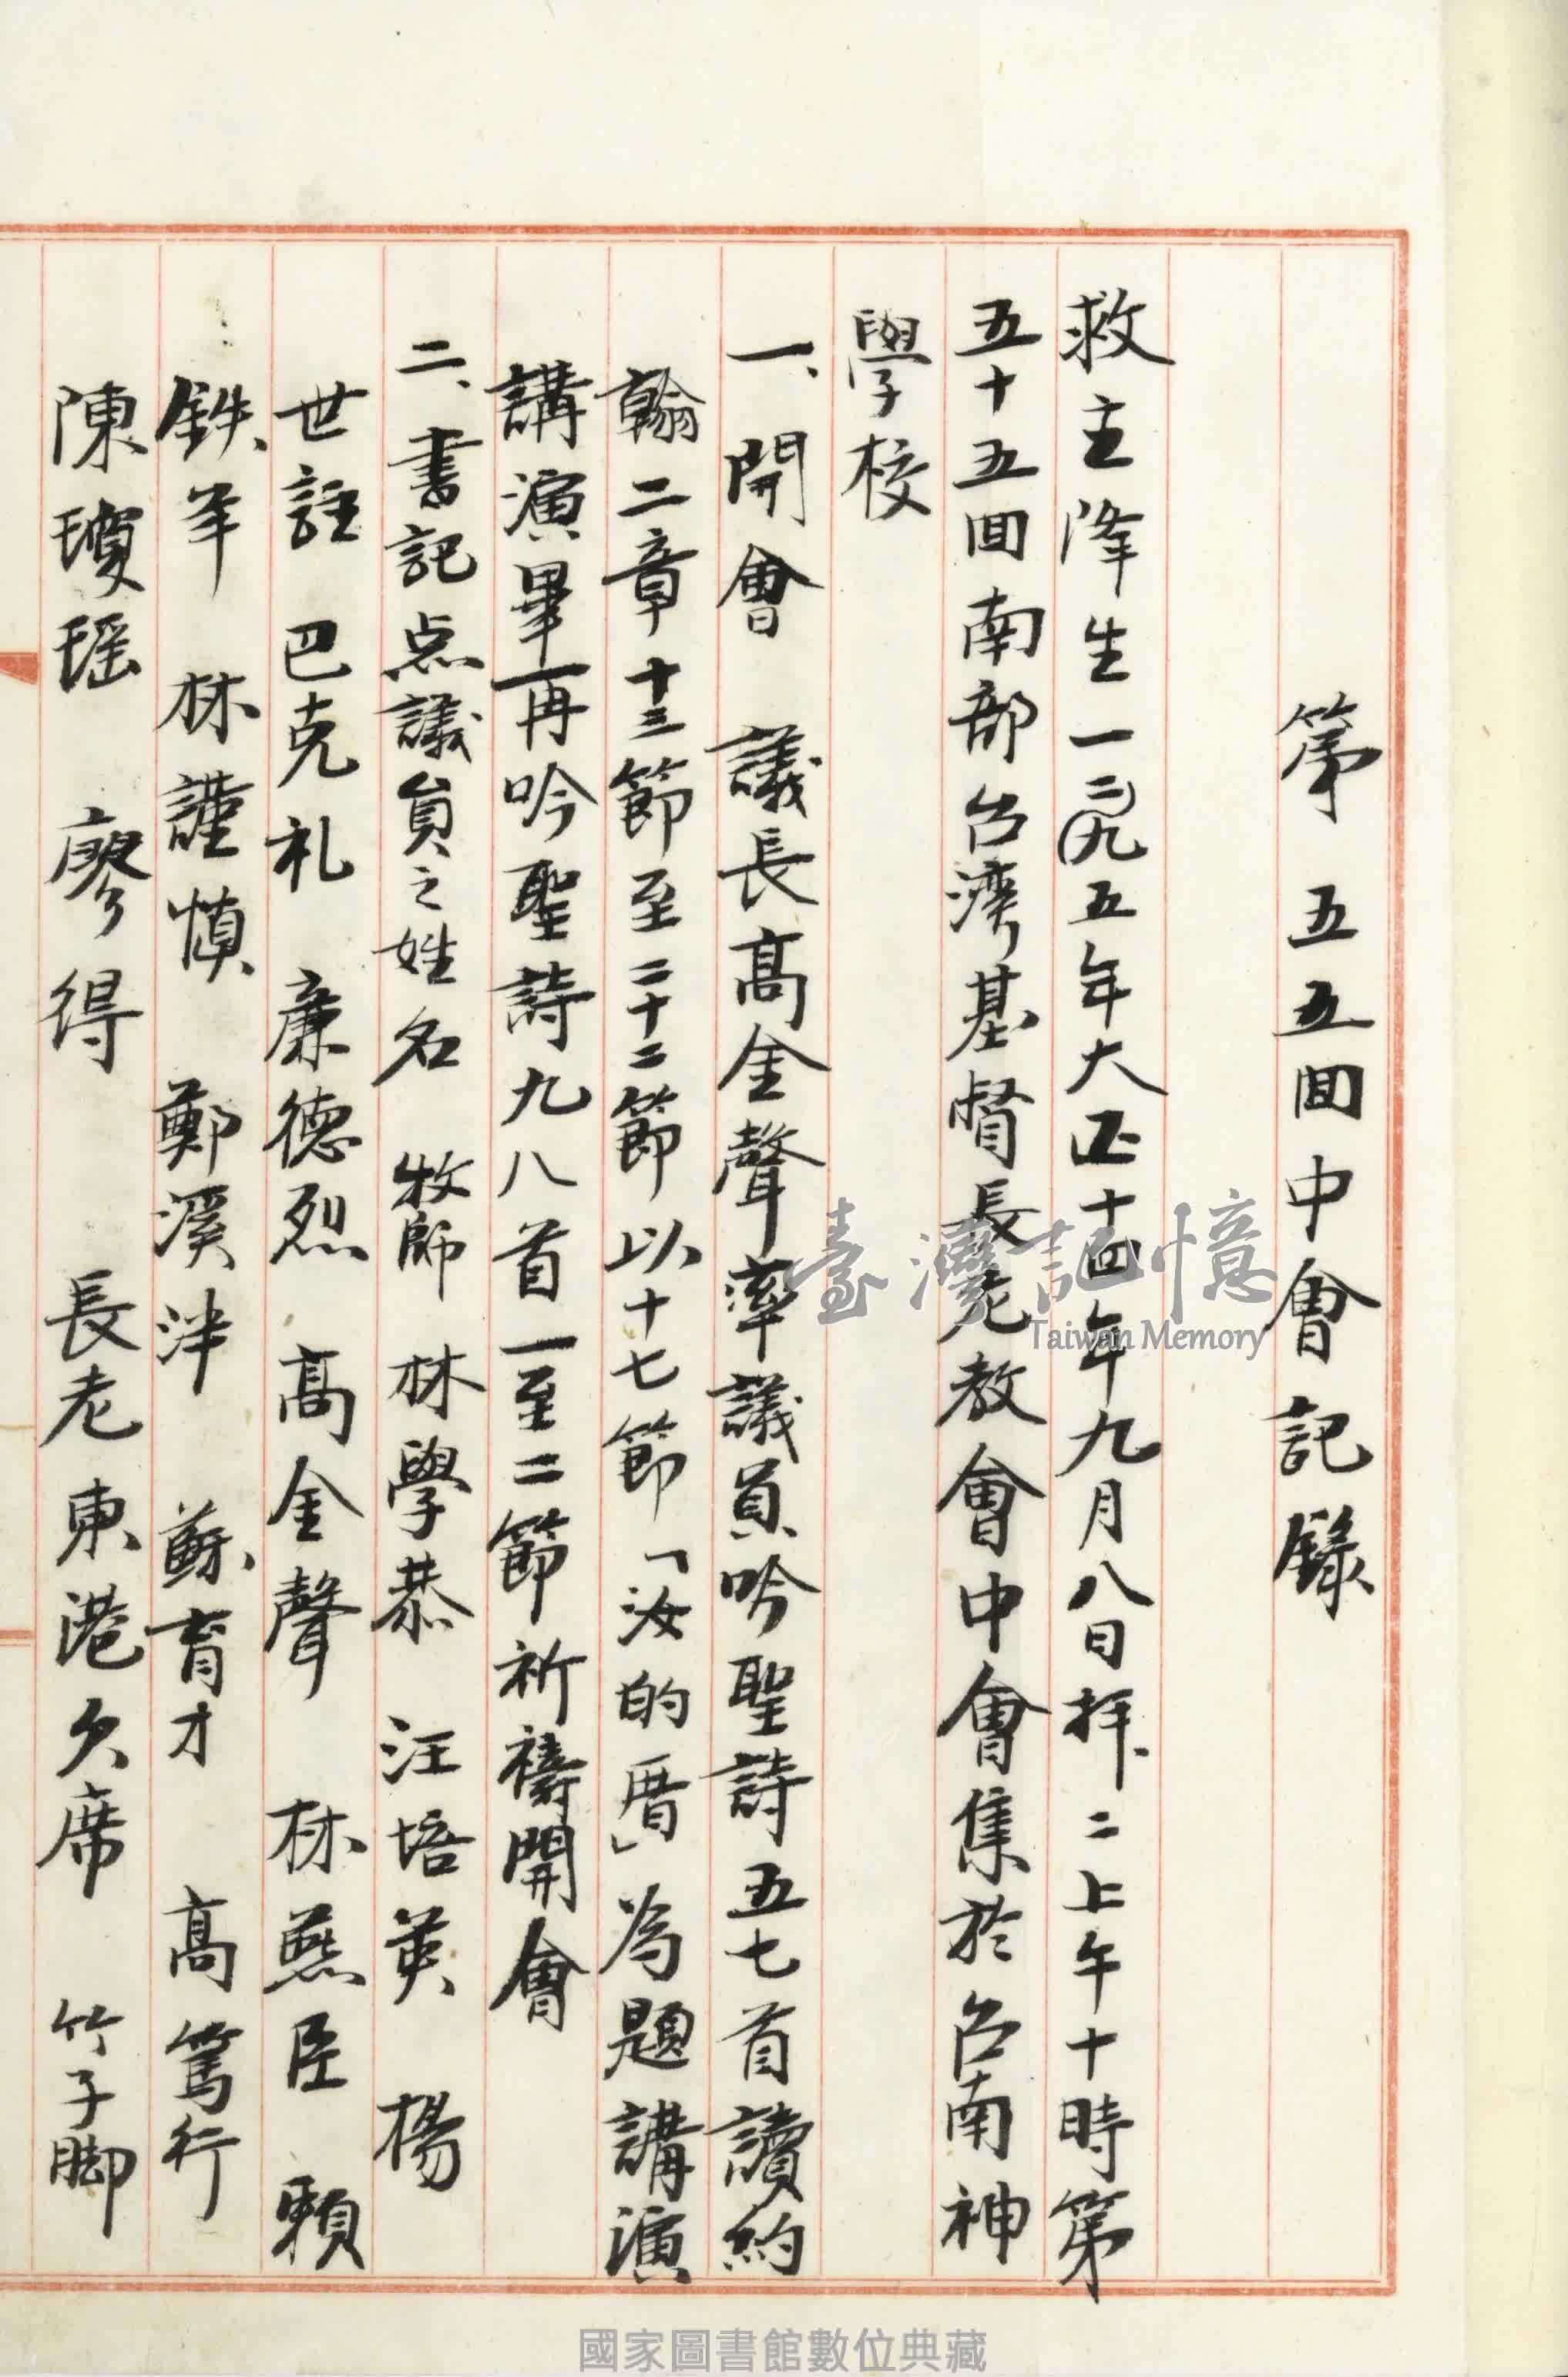 第五五回中會記錄
救主降生一二九五年大正十四年九月八日拜二上午十時第
五十五回南部台湾基督長老教會中會集於台南神
學校
一、開會 議長高金聲率議員吟聖詩五七首讀約
翰二章十三節至二十二節以十七節「汝的厝」為題講演
講演畢再吟聖詩九八首一至二節祈禱開會
二、書記点議員之姓名 牧師 林學恭 汪培英 楊
世註 巴克礼 廉德烈 高金聲 林燕臣 賴
鉄羊 林謹慎 鄭溪泮 蘇育才 高篤行
陳瓊瑶 廖得 長老 東港欠席 竹子脚
臺灣記憶
Taiwan Memory
國家圖書館數位典藏